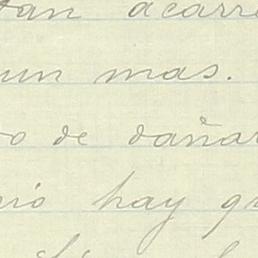 tan acarre
un mas.
o de dañar
nio hay qu